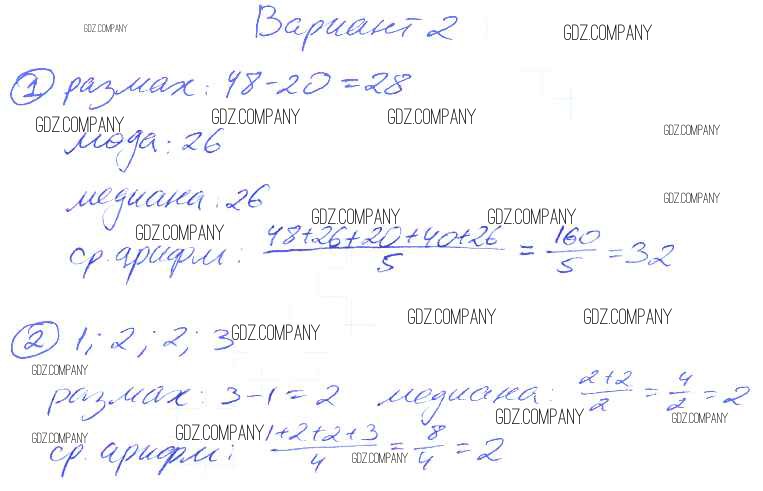 Вариант 2
GDZ.COMPANY GDZ.COMPANY
1 размах: 48-20=28
GDZ.COMPANY GDZ.COMPANY GDZ.COMPANY GDZ.COMPANY
мода: 26
медиана: 26 GDZ.COMPANY
GDZ.COMPANY GDZ.COMPANY GDZ.COMPANY
ср. арифм: (48+26+20+40+26)/5 = 160/5 = 32
GDZ.COMPANY GDZ.COMPANY
2 1; 2; 2; 3 GDZ.COMPANY
GDZ.COMPANY
размах: 3-1=2 медиана: (2+2)/2 = 4/2 = 2
GDZ.COMPANY GDZ.COMPANY
GDZ.COMPANY GDZ.COMPANY
ср. арифм: (1+2+2+3)/4 = 8/4 = 2
GDZ.COMPANY